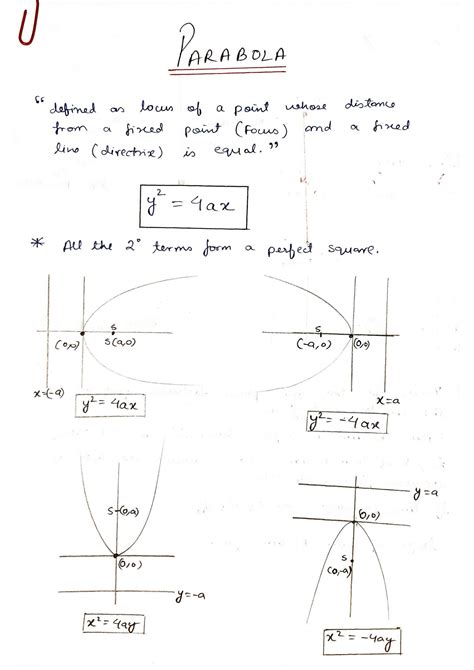 PARABOLA
“ defined as locus of a point whose distance
from a fixed point (Focus) and a fixed
line (directrix) is equal.”
y² = 4ax
* All the 2° terms form a perfect square.
S
(0,0) S(a,0)
x=(-a)
y² = 4ax
S
(-a,0) (0,0)
x=a
y² = -4ax
S-(0,a)
(0,0)
y=-a
x² = 4ay
y=a
(0,0)
S
(0,-a)
x² = -4ay